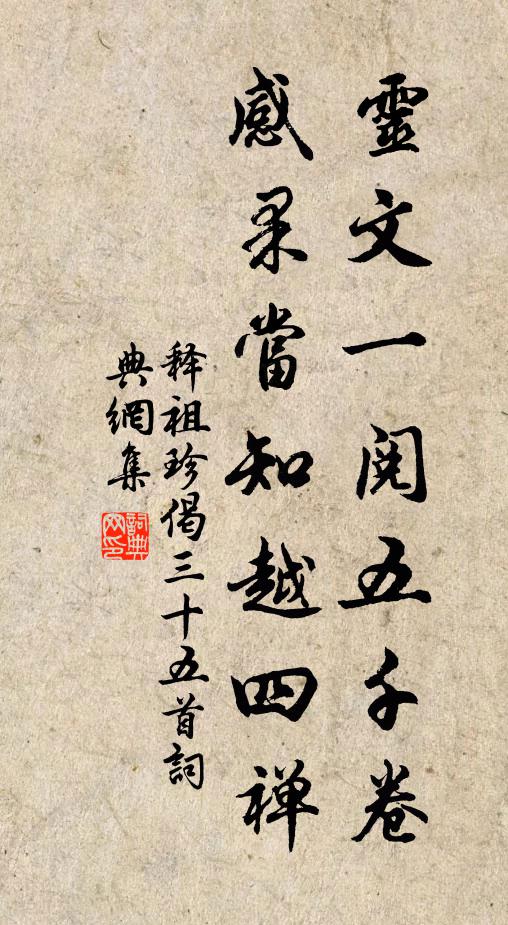 靈文一閱五千卷
感果當知越四禅
释祖珍偈三十五首詞
典網集
詞典
网印